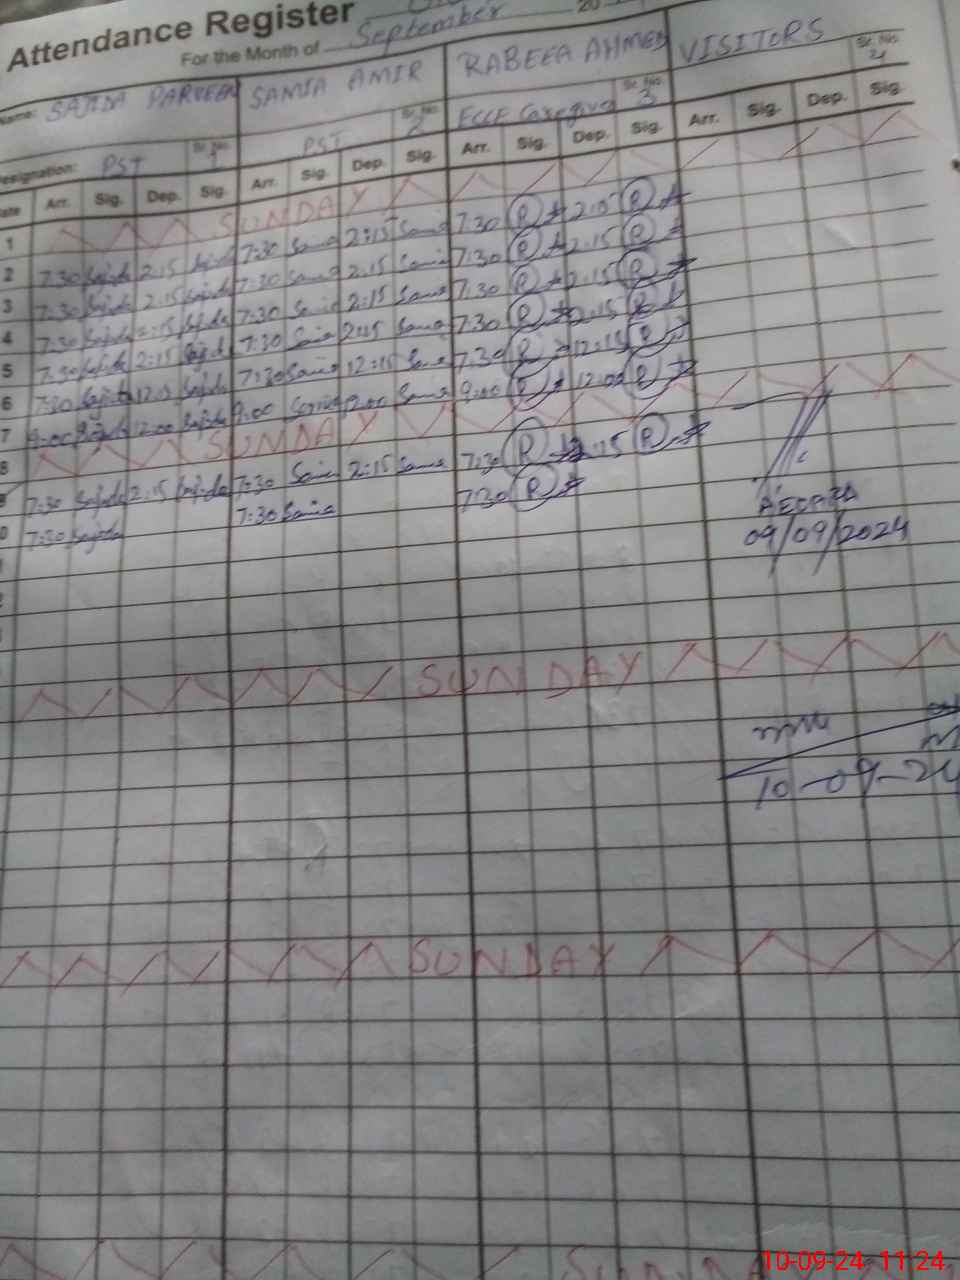 Attendance Register
For the Month of September 20
Name: SAJIDA PARVEEN SAMIA AMIR RABEEA AHMED VISITORS
Designation: PST Sr. No. 1 PST Sr. No. 2 ECCE Caregiver Sr. No. 3 Sr. No. 4
Date Arr. Sig. Dep. Sig. Arr. Sig. Dep. Sig. Arr. Sig. Dep. Sig. Arr. Sig. Dep. Sig.
1 SUNDAY
2 7:30 Sajida 2:15 Sajida 7:30 Samia 2:15 Samia 7:30 R 2:15 R
3 7:30 Sajida 2:15 Sajida 7:30 Samia 2:15 Samia 7:30 R 2:15 R
4 7:30 Sajida 2:15 Sajida 7:30 Samia 2:15 Samia 7:30 R 2:15 R
5 7:30 Sajida 2:15 Sajida 7:30 Samia 2:15 Samia 7:30 R 2:15 R
6 7:30 Sajida 12:15 Sajida 7:30 Samia 12:15 Samia 7:30 R 12:15 R
7 9:00 Sajida 12:00 Sajida 9:00 Samia 12:00 Samia 9:00 R 12:00 R
8 SUNDAY
7:30 Sajida 2:15 Sajida 7:30 Samia 2:15 Samia 7:30 R 2:15 R
0 7:30 Sajida 7:30 Samia 7:30 R
09/09/2024
SUNDAY
10-09-24
SUNDAY
SUNDAY
10-09-24 11:24